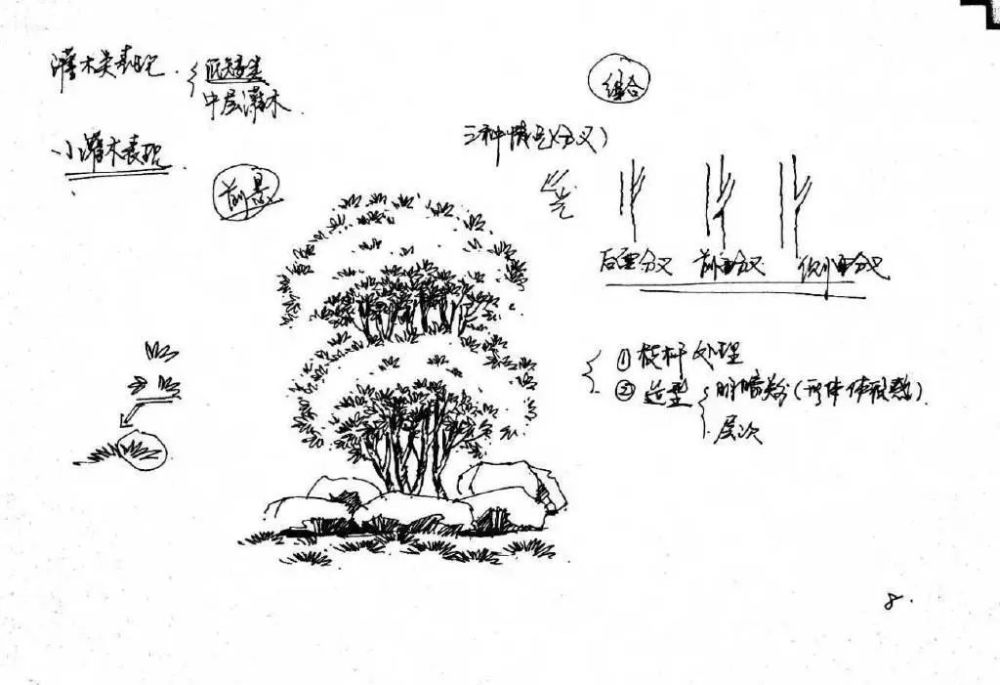 灌木类表现 { 低矮类
中层灌木
小灌木表现
前景
组合
三种情况(分义)
光
后面分义 前面分义 侧面分义
①枝杆处理
②造型 { 明暗类(形体体积感)
层次
8.